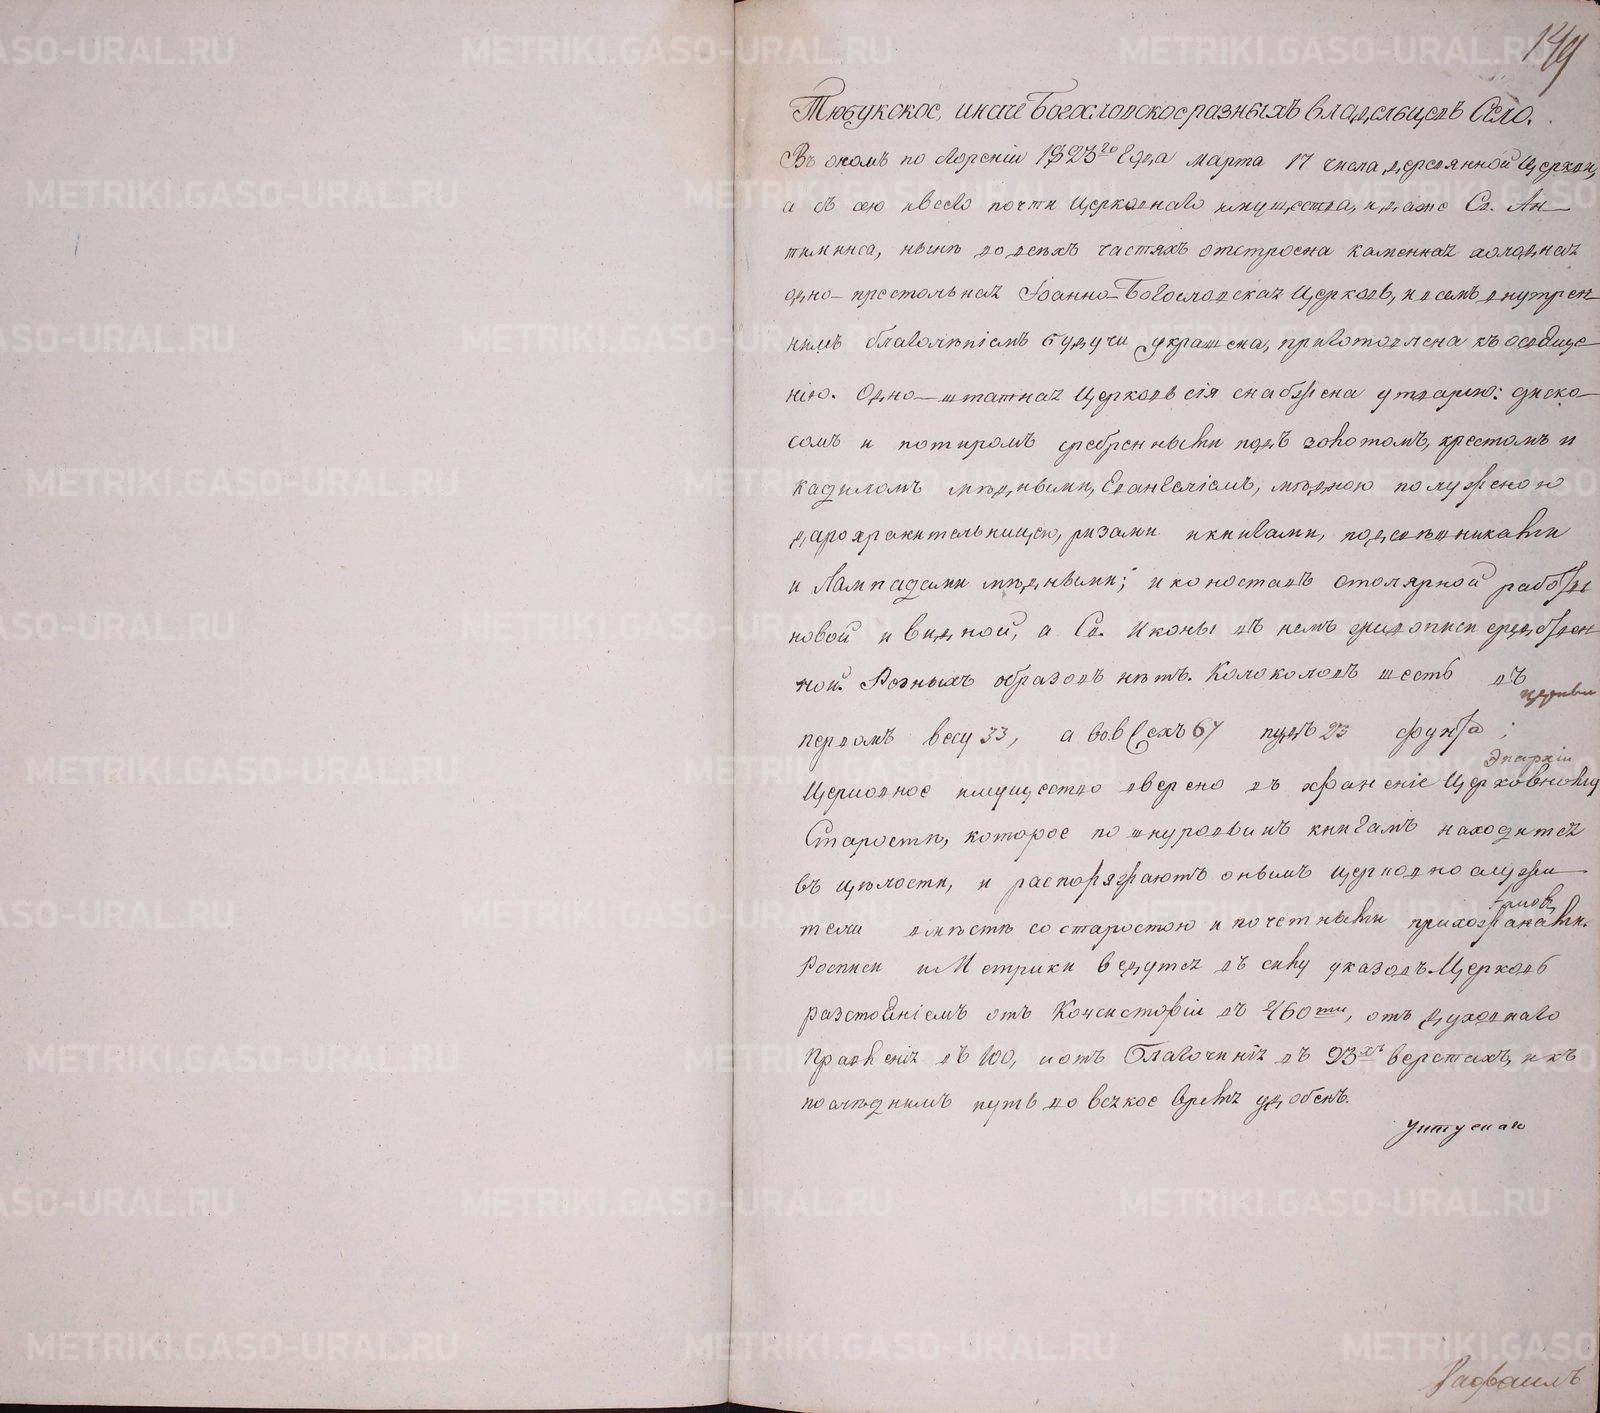 149
Тюбукское, иначе Богословское разныхъ владельцевъ Село.
Въ ономъ по сгореніи 1823го года марта 17 числа деревянной Церкви,
а съ нею и всего почти Церковнаго имущества, и даже Св. Ан-
тиминса, ныне во всехъ частяхъ отстроена каменная холодная
одно-престольная Іоанно-Богословская Церковь, и всемъ внутрен-
нимъ благолѣпіемъ будучи украшена, приготовлена къ освяще-
нію. Одно-штатная Церковь сія снабжена утварью: диско-
сомъ и потиромъ сребренными подъ золотомъ, крестомъ и
кадиломъ мѣдными, Евангеліемъ, мѣдною полуженою
дарохранительницею, ризами и книгами, подсвѣшниками
и Лампадами мѣдными; иконостасъ столярной работы
новой и видной, а Св. Иконы въ немъ живописи средствен-
ной. Розныхъ образовъ нѣтъ. Колоколовъ шесть въ
церкви
первомъ весу 33, а во всехъ 67 пудъ 23 фунта;
Епархіи
Церковное имущество вверено въ храненіе Церковному
Старостѣ, которое по шнуровымъ книгамъ находится
въ цѣлости, и распоряжаютъ онымъ церковнослужи-
тели вмѣстѣ со старостою и почетными прихожанами.
Росписи и Метрики ведутся въ силу указовъ. Церковь
разстояніемъ отъ Консисторіи въ 460ти, отъ духовнаго
Правленія въ 100, и отъ Благочинія въ 23хъ верстахъ, и къ
последнимъ путь во всякое время удобенъ.